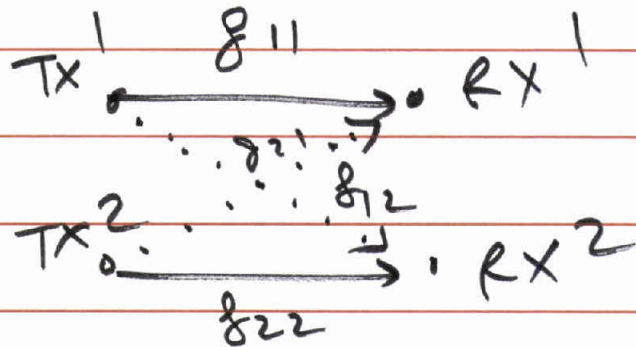 g11
TX1 RX1
g21
g12
TX2 RX2
g22